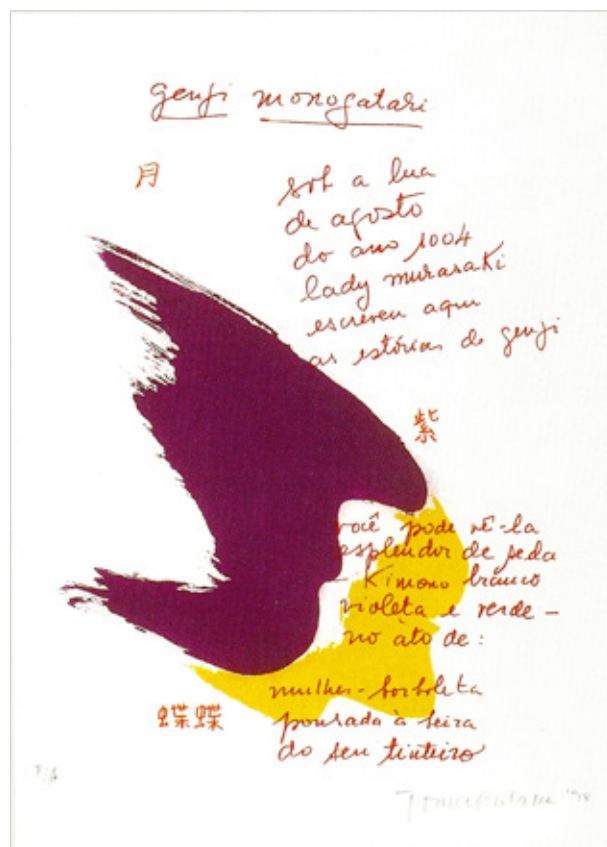 genji monogatari
月
sob a lua
de agosto
do ano 1004
lady murasaki
escreveu aqui
as estórias de genji
紫
você pode vê-la
esplendor de seda
– kimono branco
violeta e verde –
no ato de:
mulher-borboleta
pousada à beira
do seu tinteiro
蝶蝶
P/A